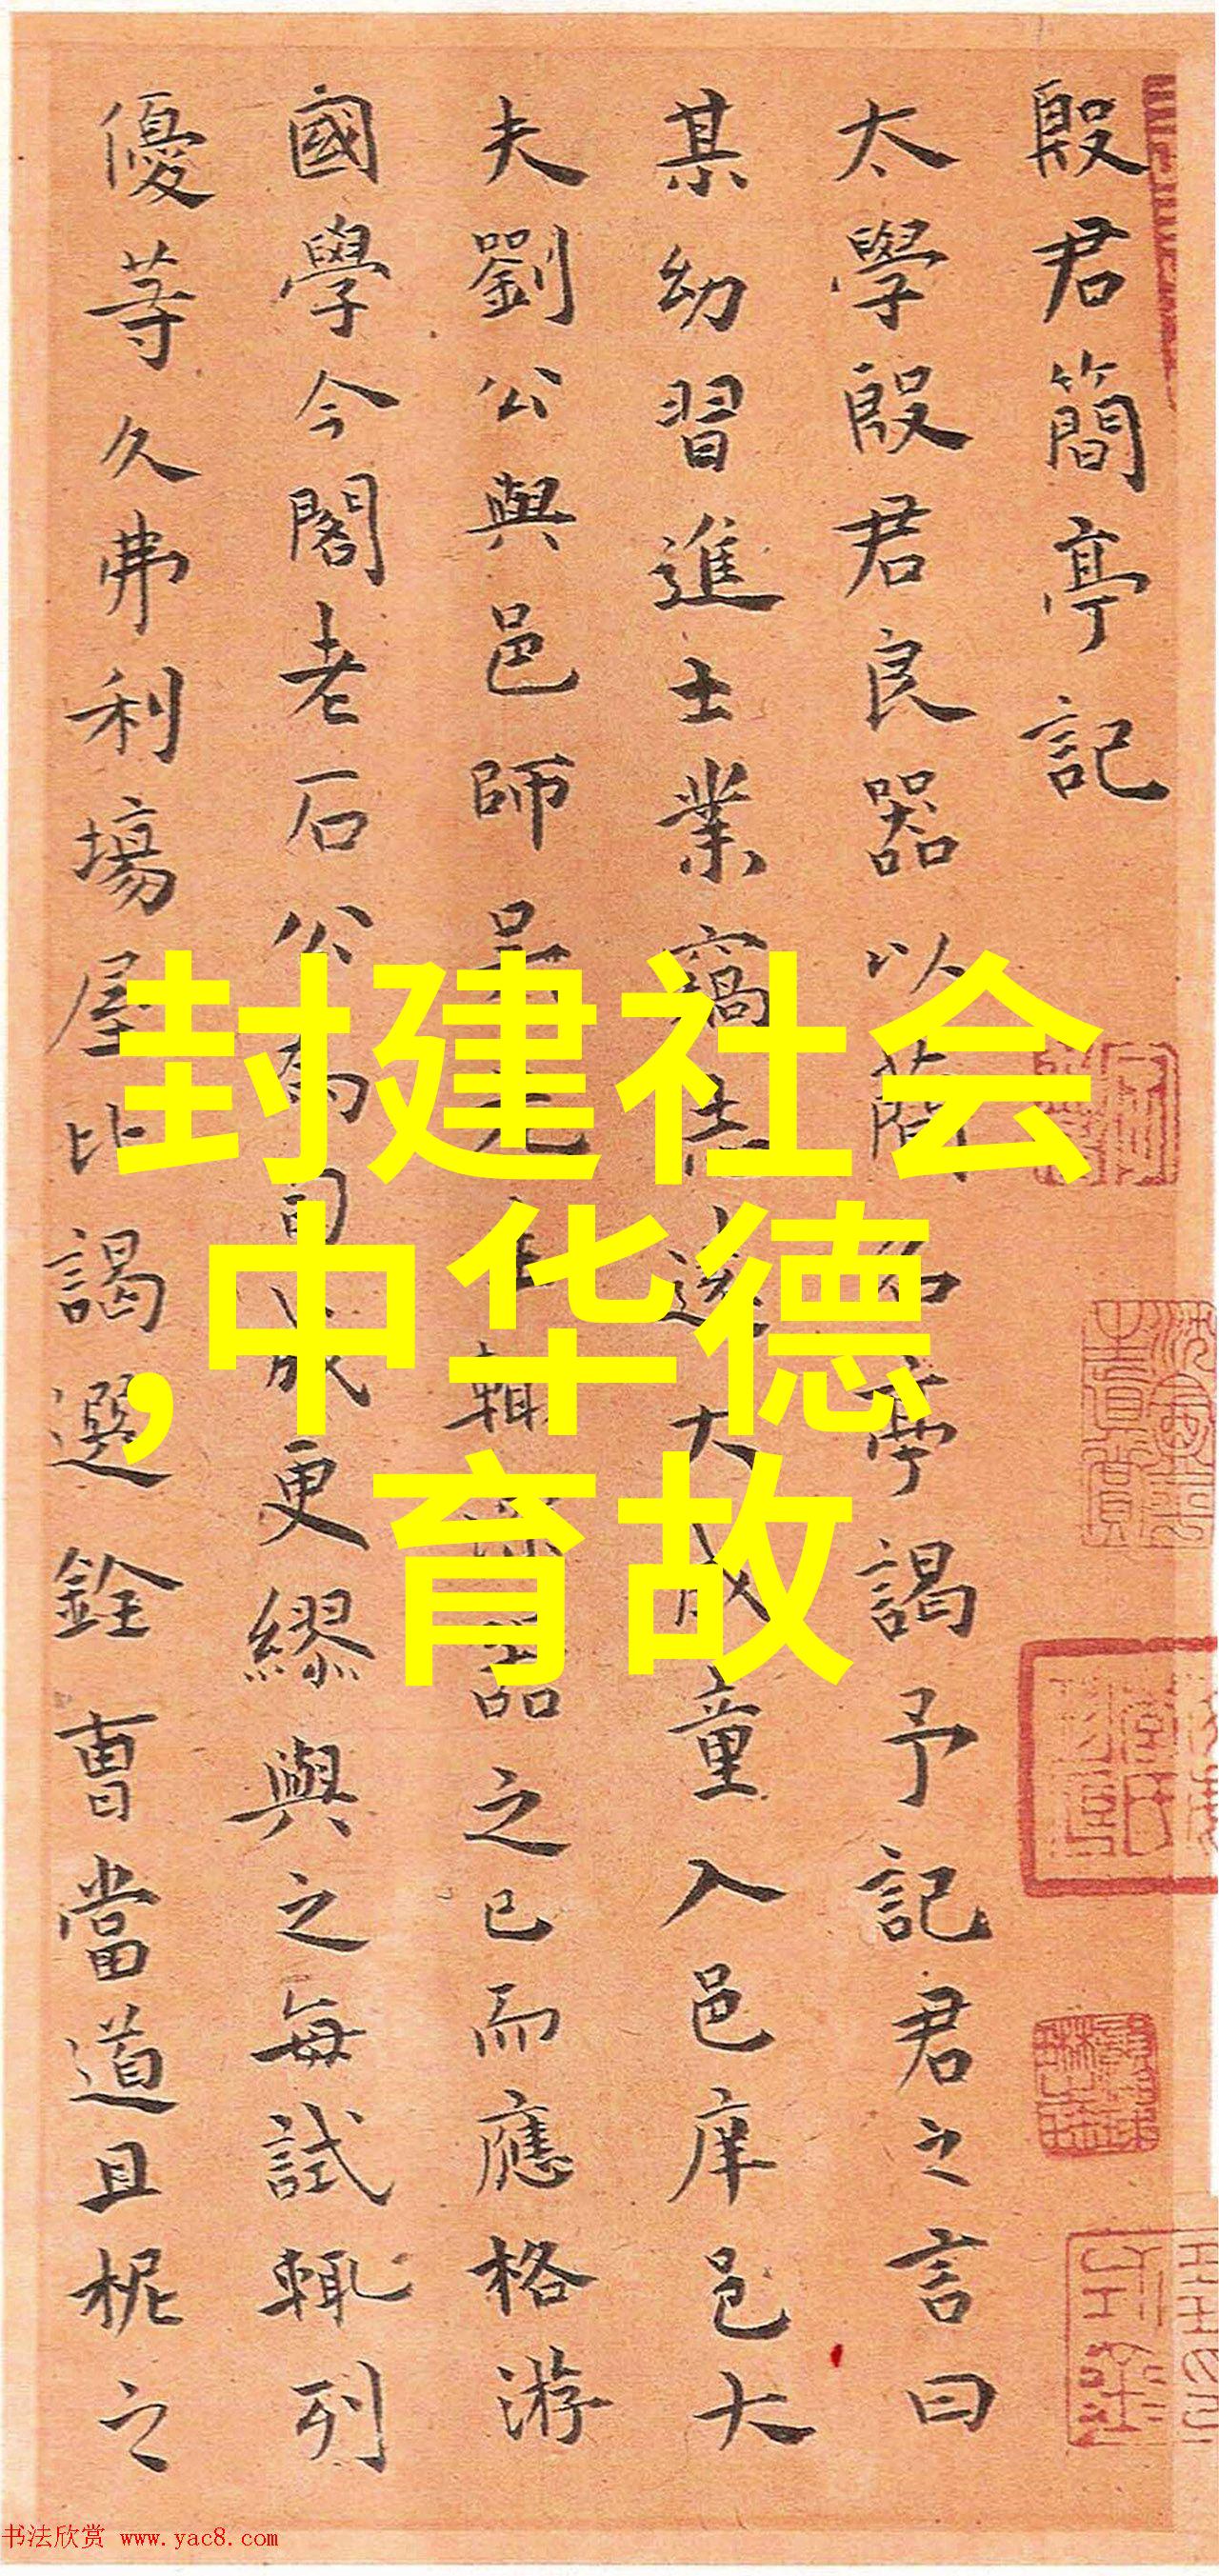 殷君簡亭記
太學殷君良器以簡名亭謁予記君之言曰
某幼習進士業竊志遠大成童入邑庠邑大
夫劉公與邑師吳先生輯器之已而應格游
國學今閣老石公為司成更繆與之每試輒列
優等久弗利場屋比謁選銓曹當道且柅之
封建社会
,中华德
育故
书法欣赏 www.yac8.com